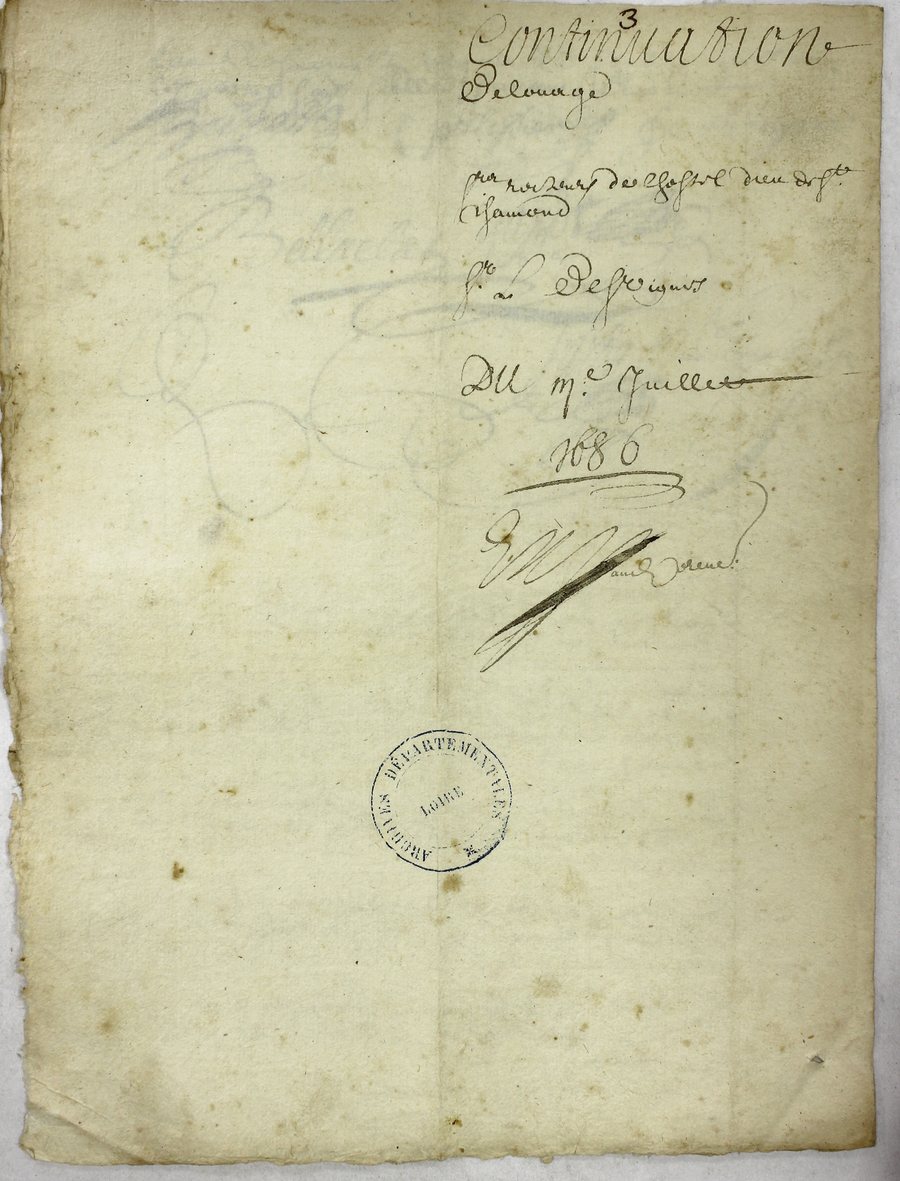 3
Continuation
De louage
Srs recteurs de lhostel dieu de St
chamond
Sr L Desvignes
DU me Juillet
1686
ARCHIVES DÉPARTEMENTALES
LOIRE